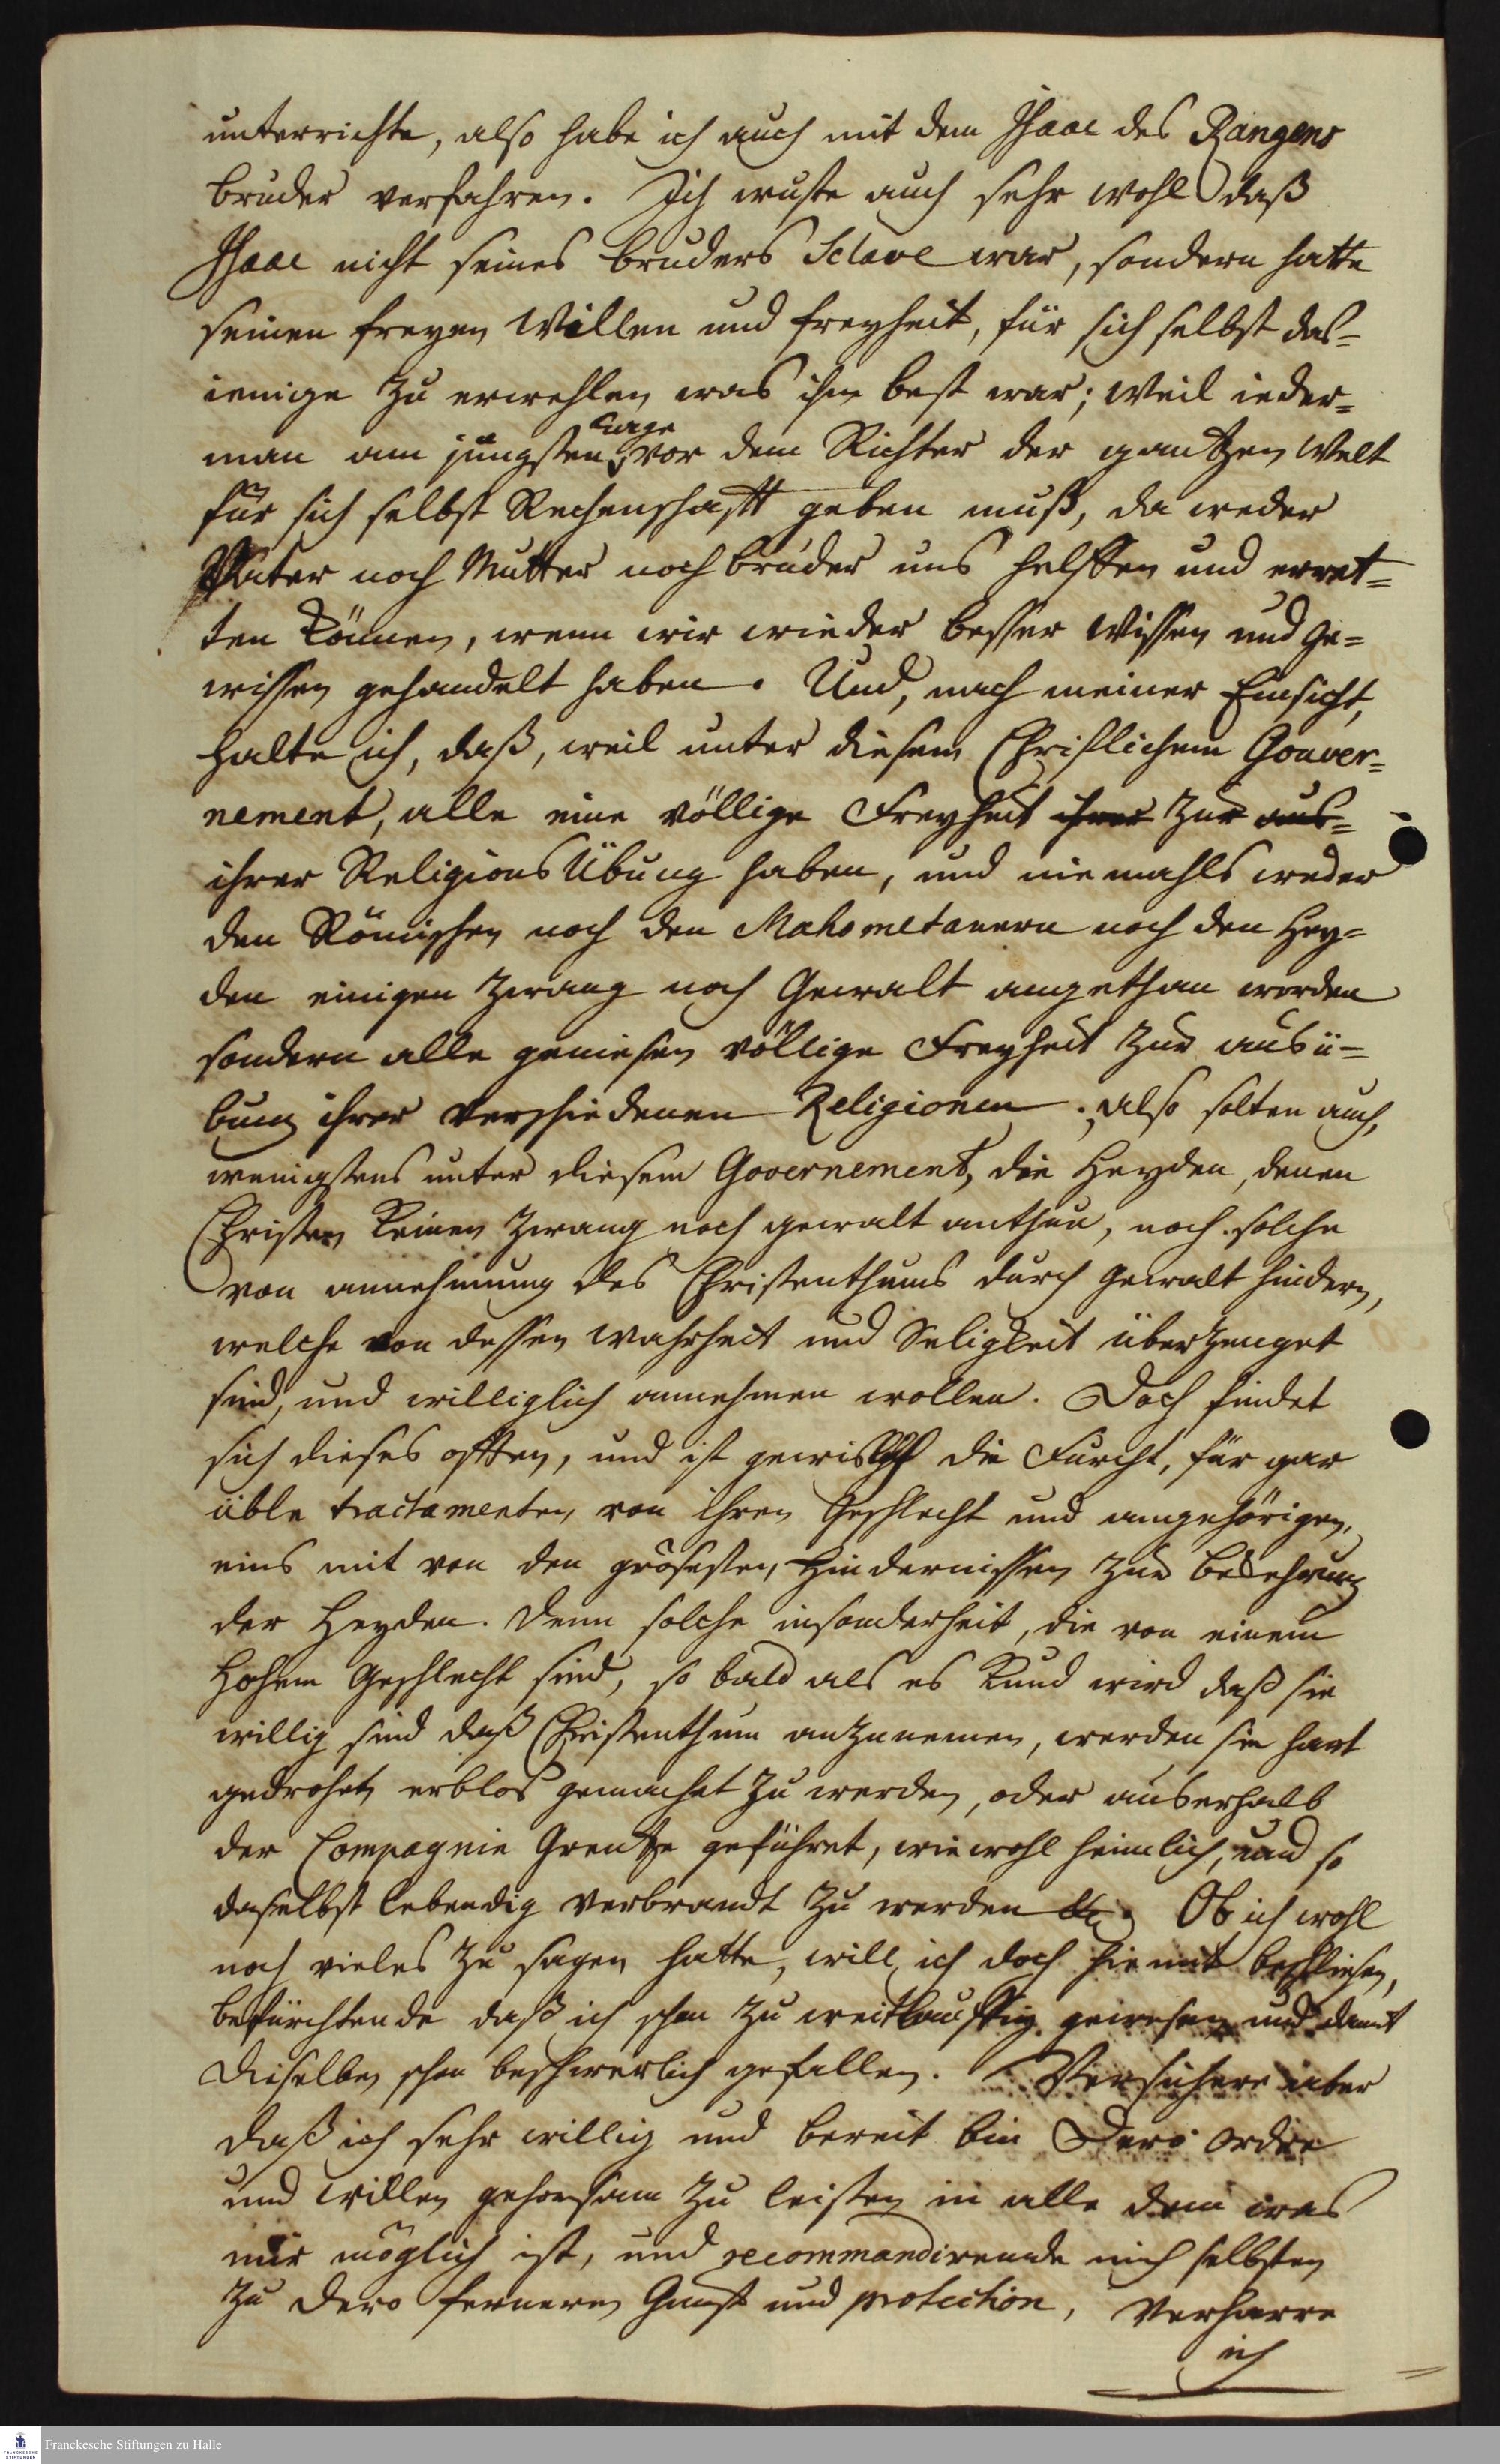 unterrichte, also habe ich auch mit dem Isaac des Rangens
bruder verfahren. Ich wuste auch sehr wohl daß
Isaac nicht seines bruders Sclave war, sondern hatte
seinen freyen Willen und freyheit, für sich selbst das=
ienige zu erwehlen was ihm best war; weil ieder=
man am jüngsten Tage vor dem Richter der gantzen Welt
für sich selbst Rechenschafft geben muß, da weder
Vater noch Mutter noch bruder uns helffen und erret=
ten können, wenn wir wieder besser Wissen und Ge=
wissen gehandelt haben. Und, nach meiner Einsicht,
halte ich, daß, weil unter diesem Christlichem Gouver=
nement, alle eine völlige Freyheit ihrer zur aus=
ihrer Religions Übung haben, und niemahls weder
den Römischen noch den Mahometanern noch den Hey=
den einigen Zwang noch Gewalt angethan worden
sondern alle geniesen völlige Freyheit zur ausü=
bung ihrer verschiedenen Religionen; also solten auch,
wenigstens unter diesem Governement, die Heyden, denen
Christen keinen Zwang noch gewalt anthun, noch solche
von annehmung des Christenthums durch Gewalt hindern,
welche von dessen Wahrheit und Seligkeit überzeuget
sind, und williglich annehmen wollen. Doch findet
sich dieses offten, und ist gewis die Furcht, für gar
üble tractamenten, von ihren Geschlecht und angehörigen,
eins mit von den grösesten, Hindernissen zur bekehrung
der Heyden. Denn solche insonderheit, die von einem
Hohem Geschlecht sind, so bald als es kund wird daß sie
willig sind daß Christenthum anzunemen, werden sie hart
gedrohet, erblos gemachet zu werden, oder auserhalb
der Compagnie Grentze geführet, wiewohl heimlich, und so
daselbst lebendig verbrandt zu werden &c. Ob ich wohl
noch vieles zu sagen hatte, will ich doch hiemit beschliesen,
befürchtende daß ich schon zu weitläufftig gewesen und damit
dieselben schon beschwerlich gefallen. Versichere aber
daß ich sehr willig und bereit bin Dero Ordre
und willen gehorsam zu leisten in alle dem was
mir möglich ist, und recommandirende mich selbsten
zu Dero fernern Gunst und protection, verharre
ich
Franckesche Stiftungen zu Halle